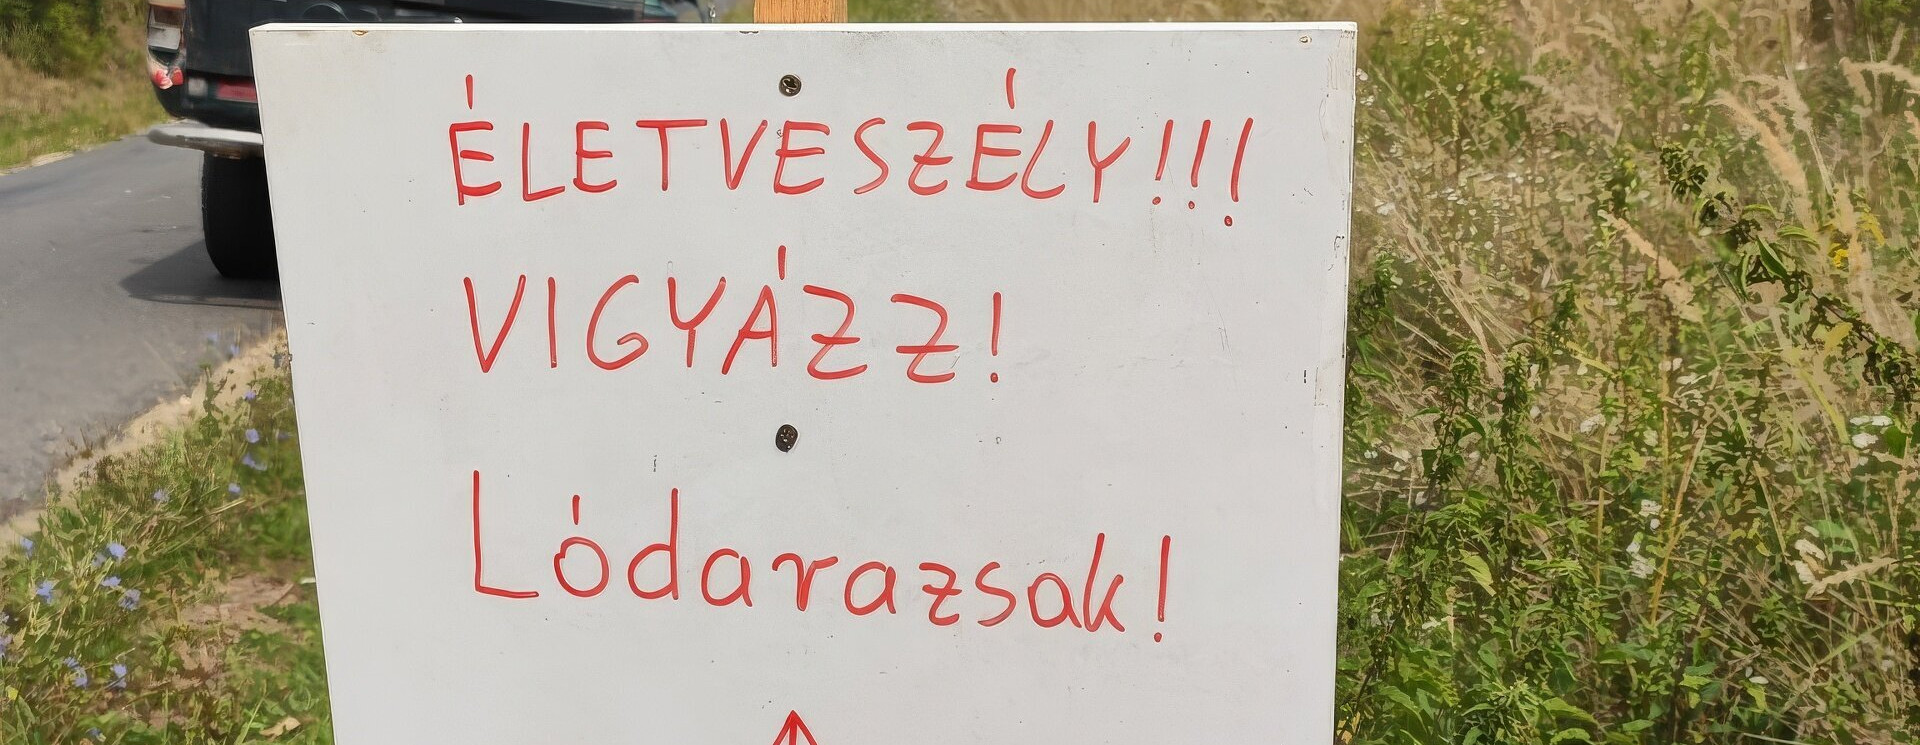 ÉLETVESZÉLY!!!
VIGYÁZZ!
Lódarazsak!